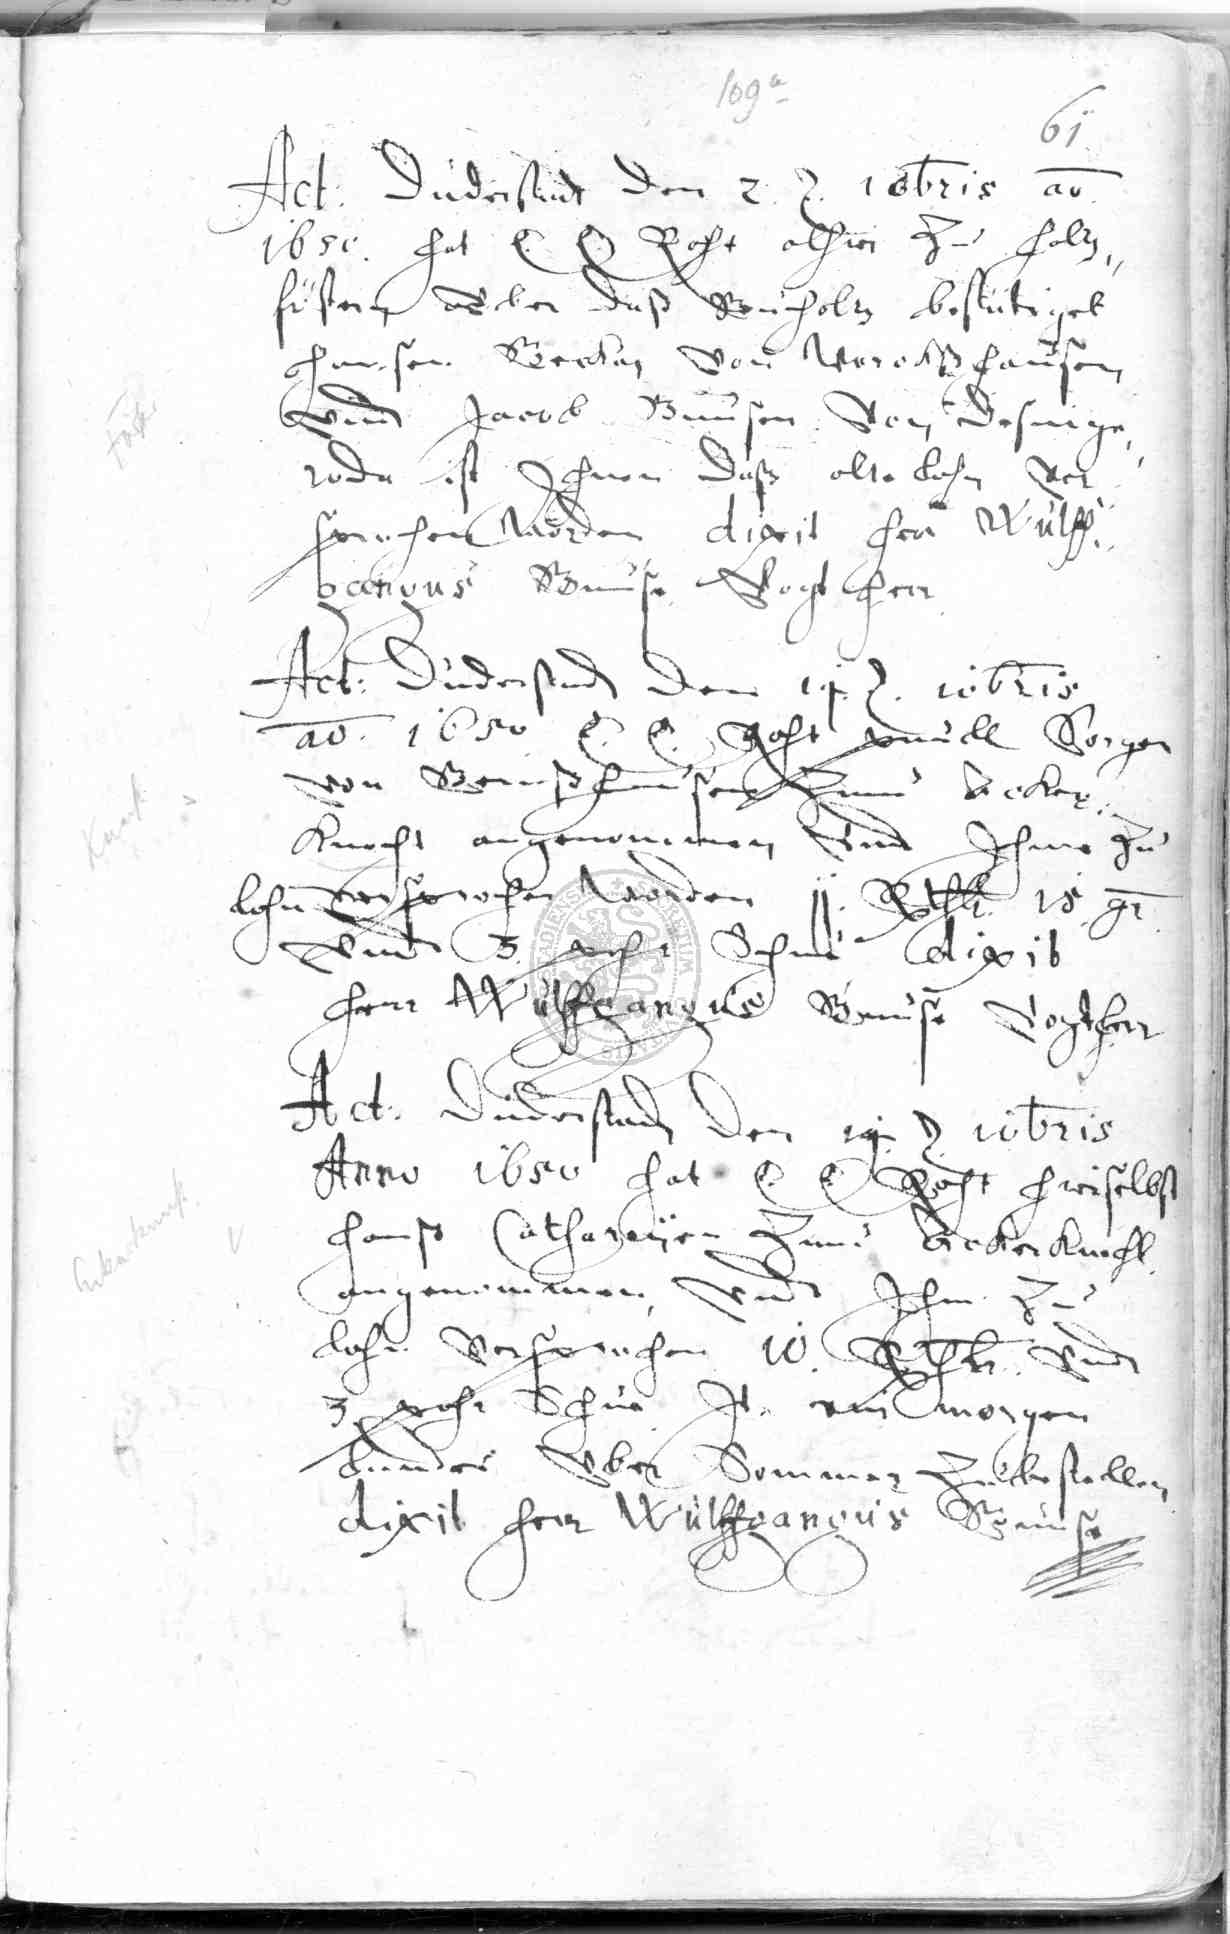 109a
61
Act: Duderstadt den 2. 10bris ao
1650. hat E. E. Raht alhier Zu holtz,,
förstern uber daß Reuholtz bestätiget
Hansen Becken von Werckßhausen
Undt Jacob Bausen Von Desinge,,
roda ist Ihnen daß alte lohn ver
sprochen Worden dixit herr Wulff,,
gangus Bause Vogt herr
Förster
Act: Duderstadt den 14. 10bris
ao 1650 E. E. Raht Paull Sorgen
von Bernßhausen Zum Acker,,
Knecht angenommen Undt Ihme Zu
lohn versprochen Worden 11. Rthlr 18 gr
Undt 3 pahr Schue dixit
herr Wulffgangus Bause Vogtherr
Knecht
Act: Duderstadt den 14. 10bris
Anno 1650 hat E E Raht hieselbst
Hanß Catharinen Zum Ackerknecht
angenommen, Undt Ihm Zu
lohn Versprochen 10. Rthlr. Undt
3 pahr Schue It. ein morgen
Landes Uber Sommer Zubestellen
dixit herr Wulffgangus Bause
Ackerknecht